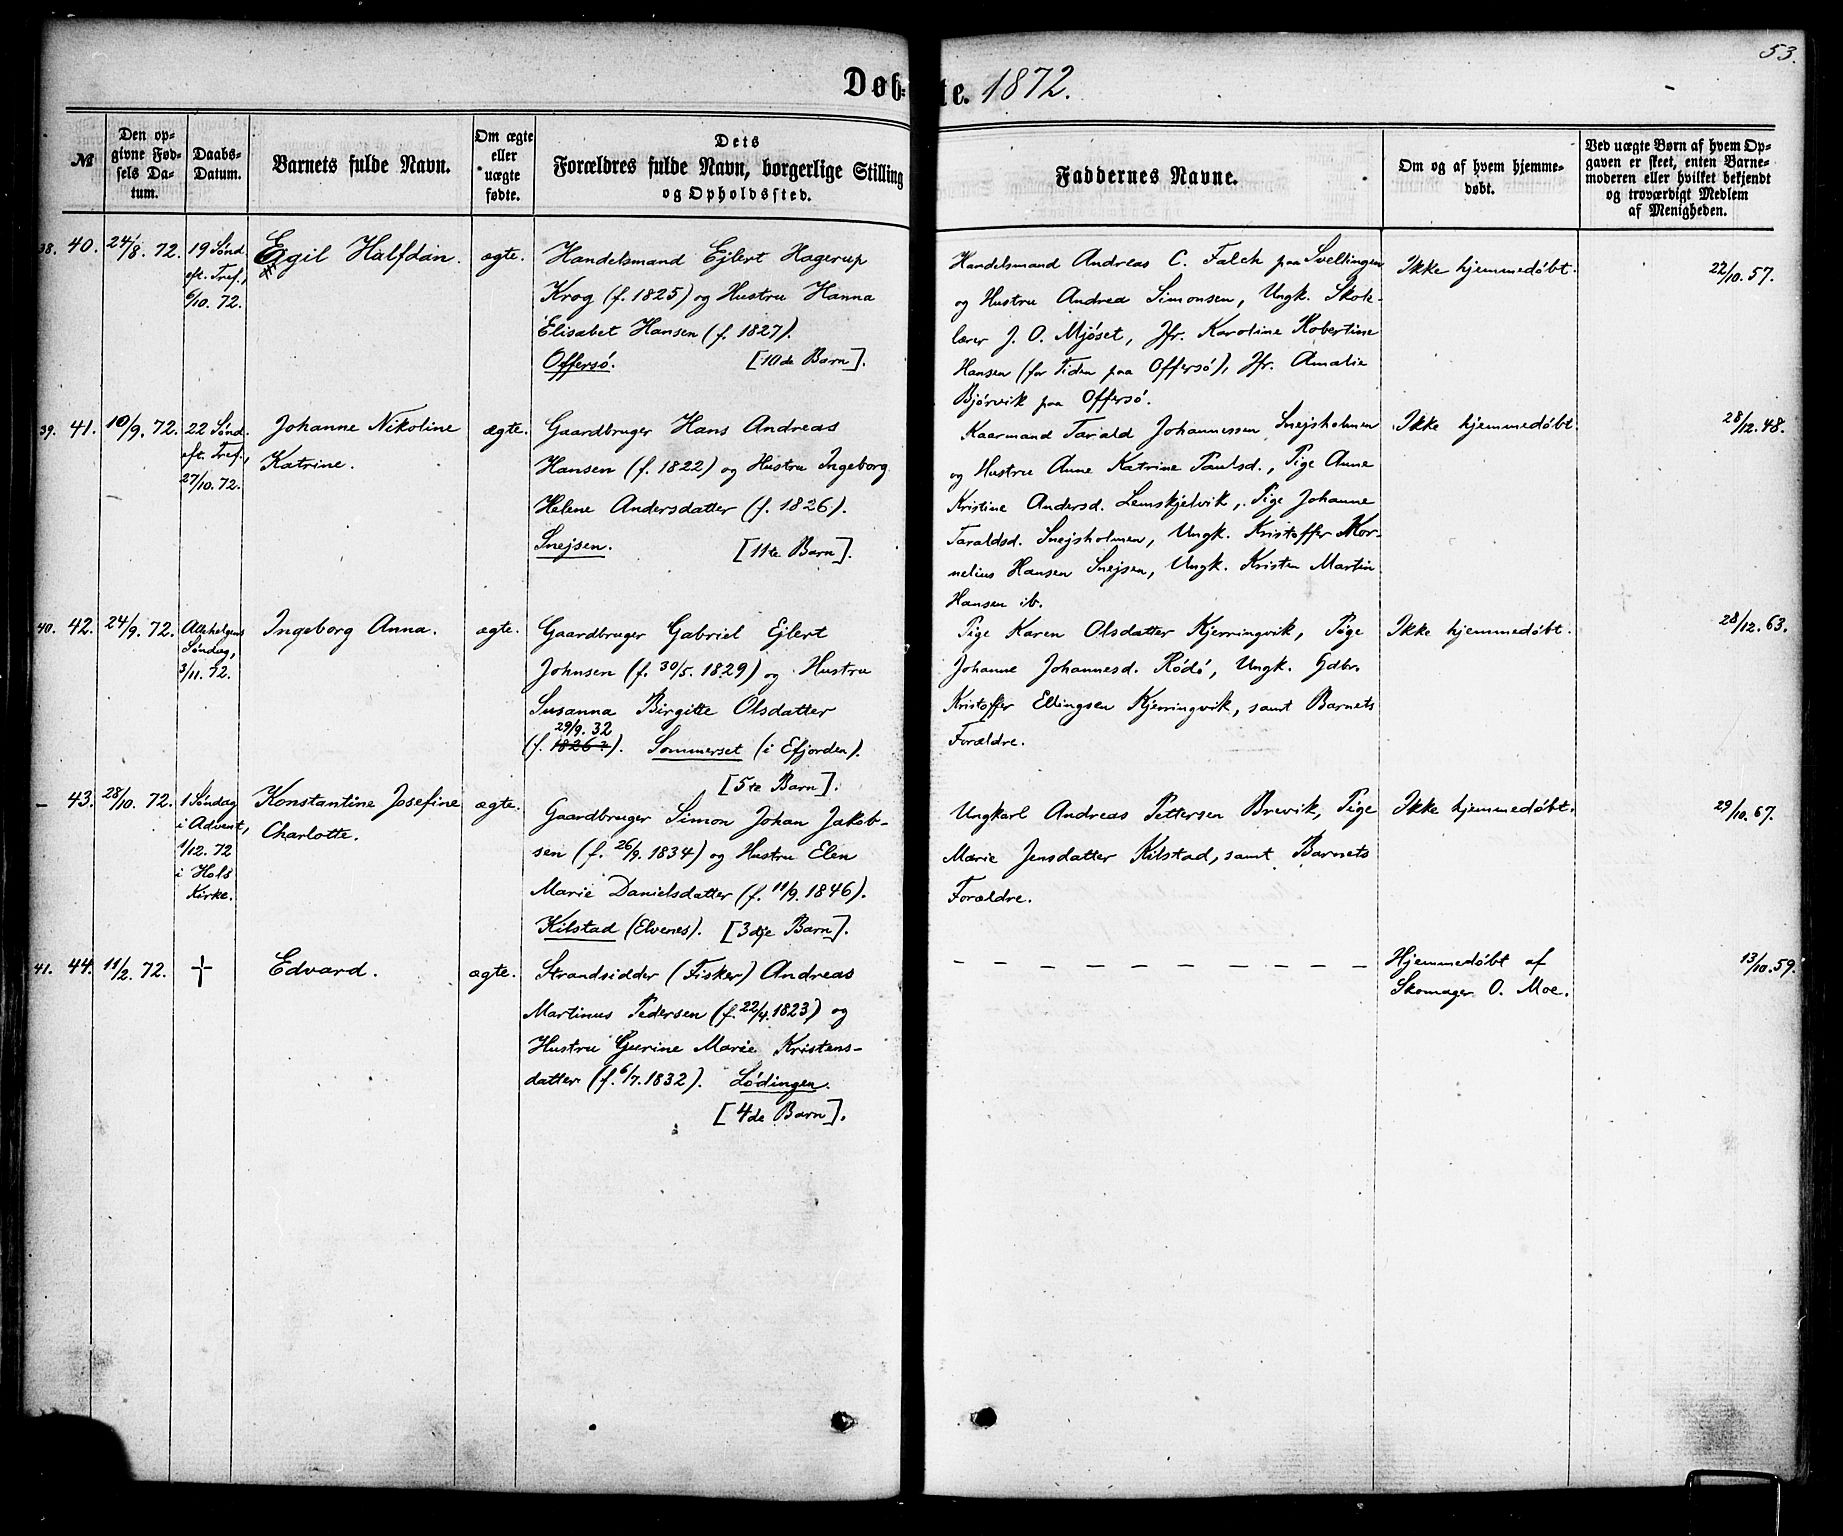 53.
Døb-te. 1872.
№
Den op-
givne Fød-
sels Da-
tum.
Daabs-
Datum.
Barnets fulde Navn.
Om ægte
eller
uægte
fødte.
Dets
Forældres fulde Navn, borgerlige Stilling
og Opholdssted.
Faddernes Navne.
Om og af hvem hjemme-
døbt.
Ved uægte Børn af hvem Op-
gaven er skeet, enten Barne-
moderen eller hvilket bekjendt
og troværdigt Medlem
af Menigheden.
38. 40. 24/8. 72.
19 Sønd.
eft. Tref.,
6/10. 72.
Egil Halfdan.
ægte.
Handelsmand Ejlert Hagerup
Krog (f. 1825) og Hustru Hanna
Elisabet Hansen (f. 1827).
Offersø. [10de Barn].
Handelsmand Andreas C. Falch paa Svellingen
og Hustru Andrea Simonsen, Ungk. Skole-
lærer J. O. Mjøset, Jfr. Karoline Robertine
Hansen (for Tiden paa Offersø), Jfr. Amalie
Bjørvik paa Offersø.
Ikke hjemmedøbt.
22/10. 57.
39. 41. 10/9. 72.
22 Sønd.
eft. Tref.,
27/10. 72.
Johanne Nikoline
Katrine.
ægte.
Gaardbruger Hans Andreas
Hansen (f. 1822) og Hustru Ingeborg
Helene Andersdatter (f. 1826).
Snejsen. [11te Barn].
Kaarmand Tarald Johannessen Snejsholmen
og Hustru Anne Katrine Paulsd., Pige Anne
Kristine Andersd. Lemskjelvik, Pige Johanne
Taraldsd. Snejsholmen, Ungk. Kristoffer Kor-
nelius Hansen Snejsen, Ungk. Kristen Martin
Hansen ib.
Ikke hjemmedøbt.
28/12. 48.
40. 42. 24/9. 72.
Allehelgens
Søndag,
3/11. 72.
Ingeborg Anna.
ægte.
Gaardbruger Gabriel Ejlert
Johnsen (f. 30/5. 1829) og Hustru
Susanna Birgitte Olsdatter
29/9. 32
(f. 1826?). Sommerset (i Efjorden).
[5te Barn].
Pige Karen Olsdatter Kjerringvik, Pige
Johanne Johannesd. Rødø, Ungk. Gdbr.
Kristoffer Ellingsen Kjerringvik, samt Barnets
Forældre.
Ikke hjemmedøbt.
28/12. 63.
– 43. 28/10. 72.
1 Søndag
i Advent,
1/12. 72
i Hols
Kirke.
Konstantine Josefine
Charlotte.
ægte.
Gaardbruger Simon Johan Jakob-
sen (f. 26/9. 1834) og Hustru Elen
Marie Danielsdatter (f. 11/9. 1846).
Kilstad (Elvenes). [3dje Barn].
Ungkarl Andreas Pettersen Brevik, Pige
Marie Jensdatter Kilstad, samt Barnets
Forældre.
Ikke hjemmedøbt.
29/10. 67.
41. 44. 11/2. 72.
†
Edvard.
ægte.
Strandsidder (Fisker) Andreas
Martinus Pedersen (f. 22/4. 1823) og
Hustru Gurine Marie Kristens-
datter (f. 6/7. 1832). Lødingen.
[4de Barn].
– – – – – – – – – – –
Hjemmedøbt af
Skomager O. Moe.
13/10. 59.